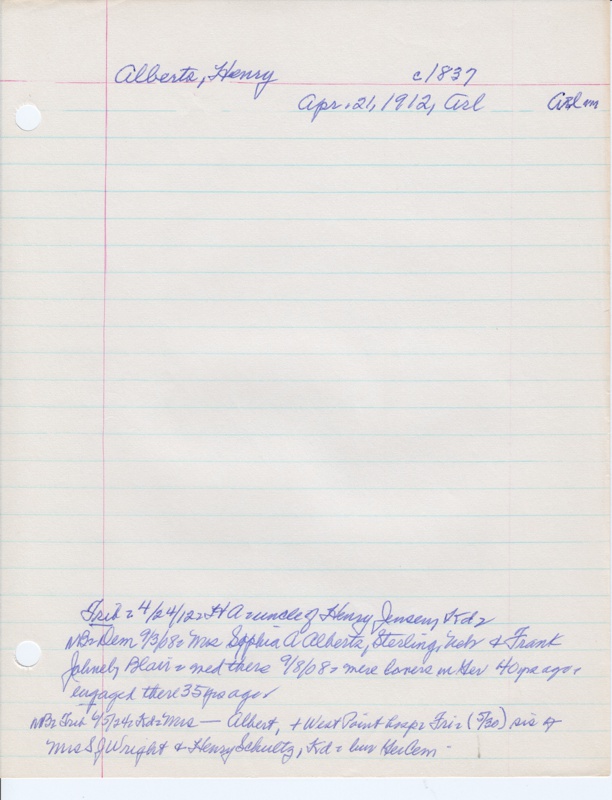 Alberts, Henry c1837
Apr. 21, 1912, Arl Arl m
Trib = 4/24/12 = H A = uncle of Henry Jensen, Kd =
NB = Dem 9/3/08 = Mrs Sophia A Alberts, Sterling, Nebr & Frank
Blair = med there 9/8/08 = were lovers in Ger 40 yrs ago =
engaged there 35 yrs ago =
NB = Trib 4/5/24 = Kd = Mrs — Albert, + West Point hosp = Fri = (5/30) sis of
Mrs S J Wright & Henry Schultz, Kd = bur